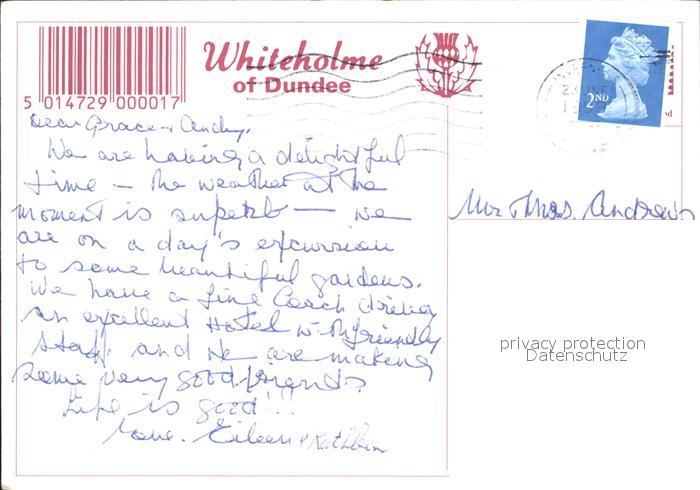 Whiteholme
of Dundee
5 014729 000017
2ND
Dear Grace & Andy,
We are having a delightful
time – the weather at the
moment is superb – we
are on a day's excursion
to some beautiful gardens.
We have a fine Coach driver
an excellent Hotel with friendly
staff. and we are making
some very good friends
Life is good!!!
Love. Eileen & Kathleen
Mr & Mrs. Andrews
privacy protection
Datenschutz